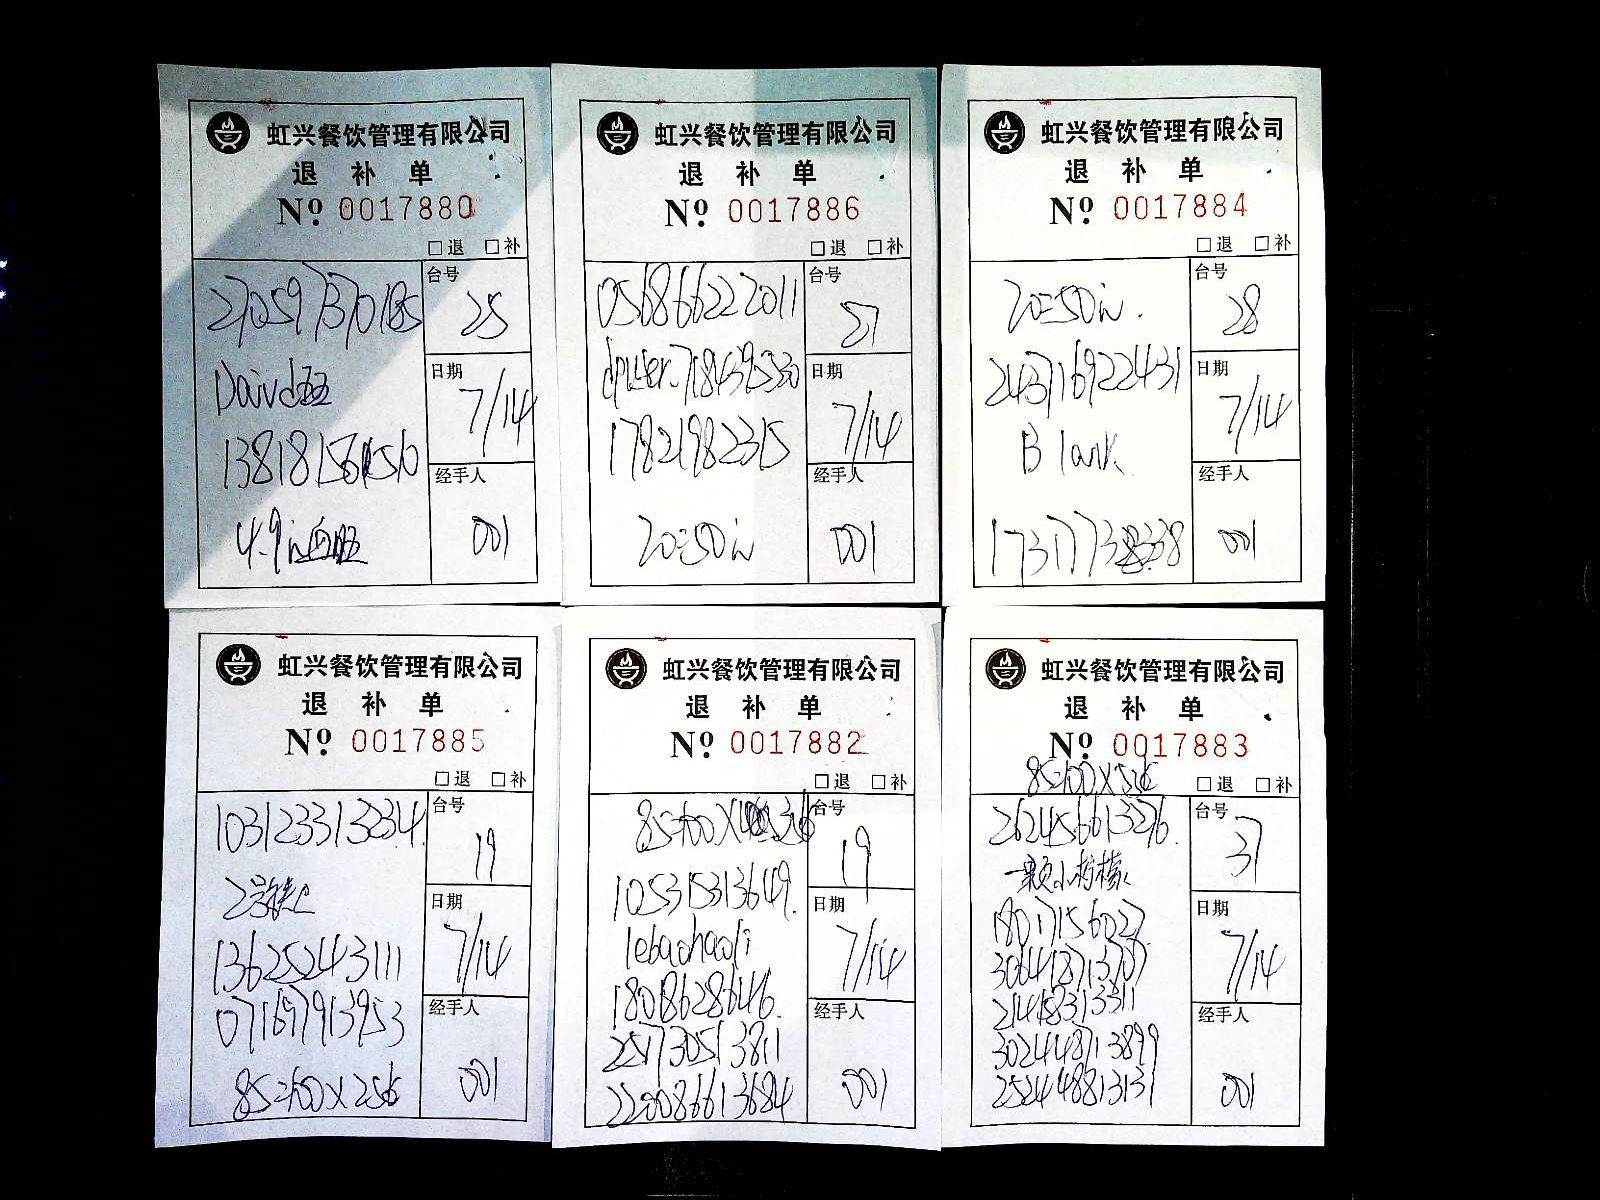 虹兴餐饮管理有限公司
退 补 单
Nº 0017880
□退 □补
台号
25
日期
7/14
经手人
001
虹兴餐饮管理有限公司
退 补 单
Nº 0017886
□退 □补
056866222011
台号
日期
7/14
17821982315
经手人
20=50
001
虹兴餐饮管理有限公司
退 补 单
Nº 0017884
□退 □补
20=50
台号
28
243716922431
日期
7/14
Blank
经手人
001
虹兴餐饮管理有限公司
退 补 单
Nº 0017885
□退 □补
103123313234
台号
19
日期
7/14
13625243111
071697913953
经手人
85=100×256
001
虹兴餐饮管理有限公司
退 补 单
Nº 0017882
□退 □补
台号
19
105315313649.
日期
lebaohaoli
7/14
18018628646.
251730513811
经手人
220086613684
001
虹兴餐饮管理有限公司
退 补 单
Nº 0017883
□退 □补
262456613276.
台号
31
一颗小柠檬
日期
18017156027
7/14
3064418713707
214158313311
经手人
302448713899
252448813131
001